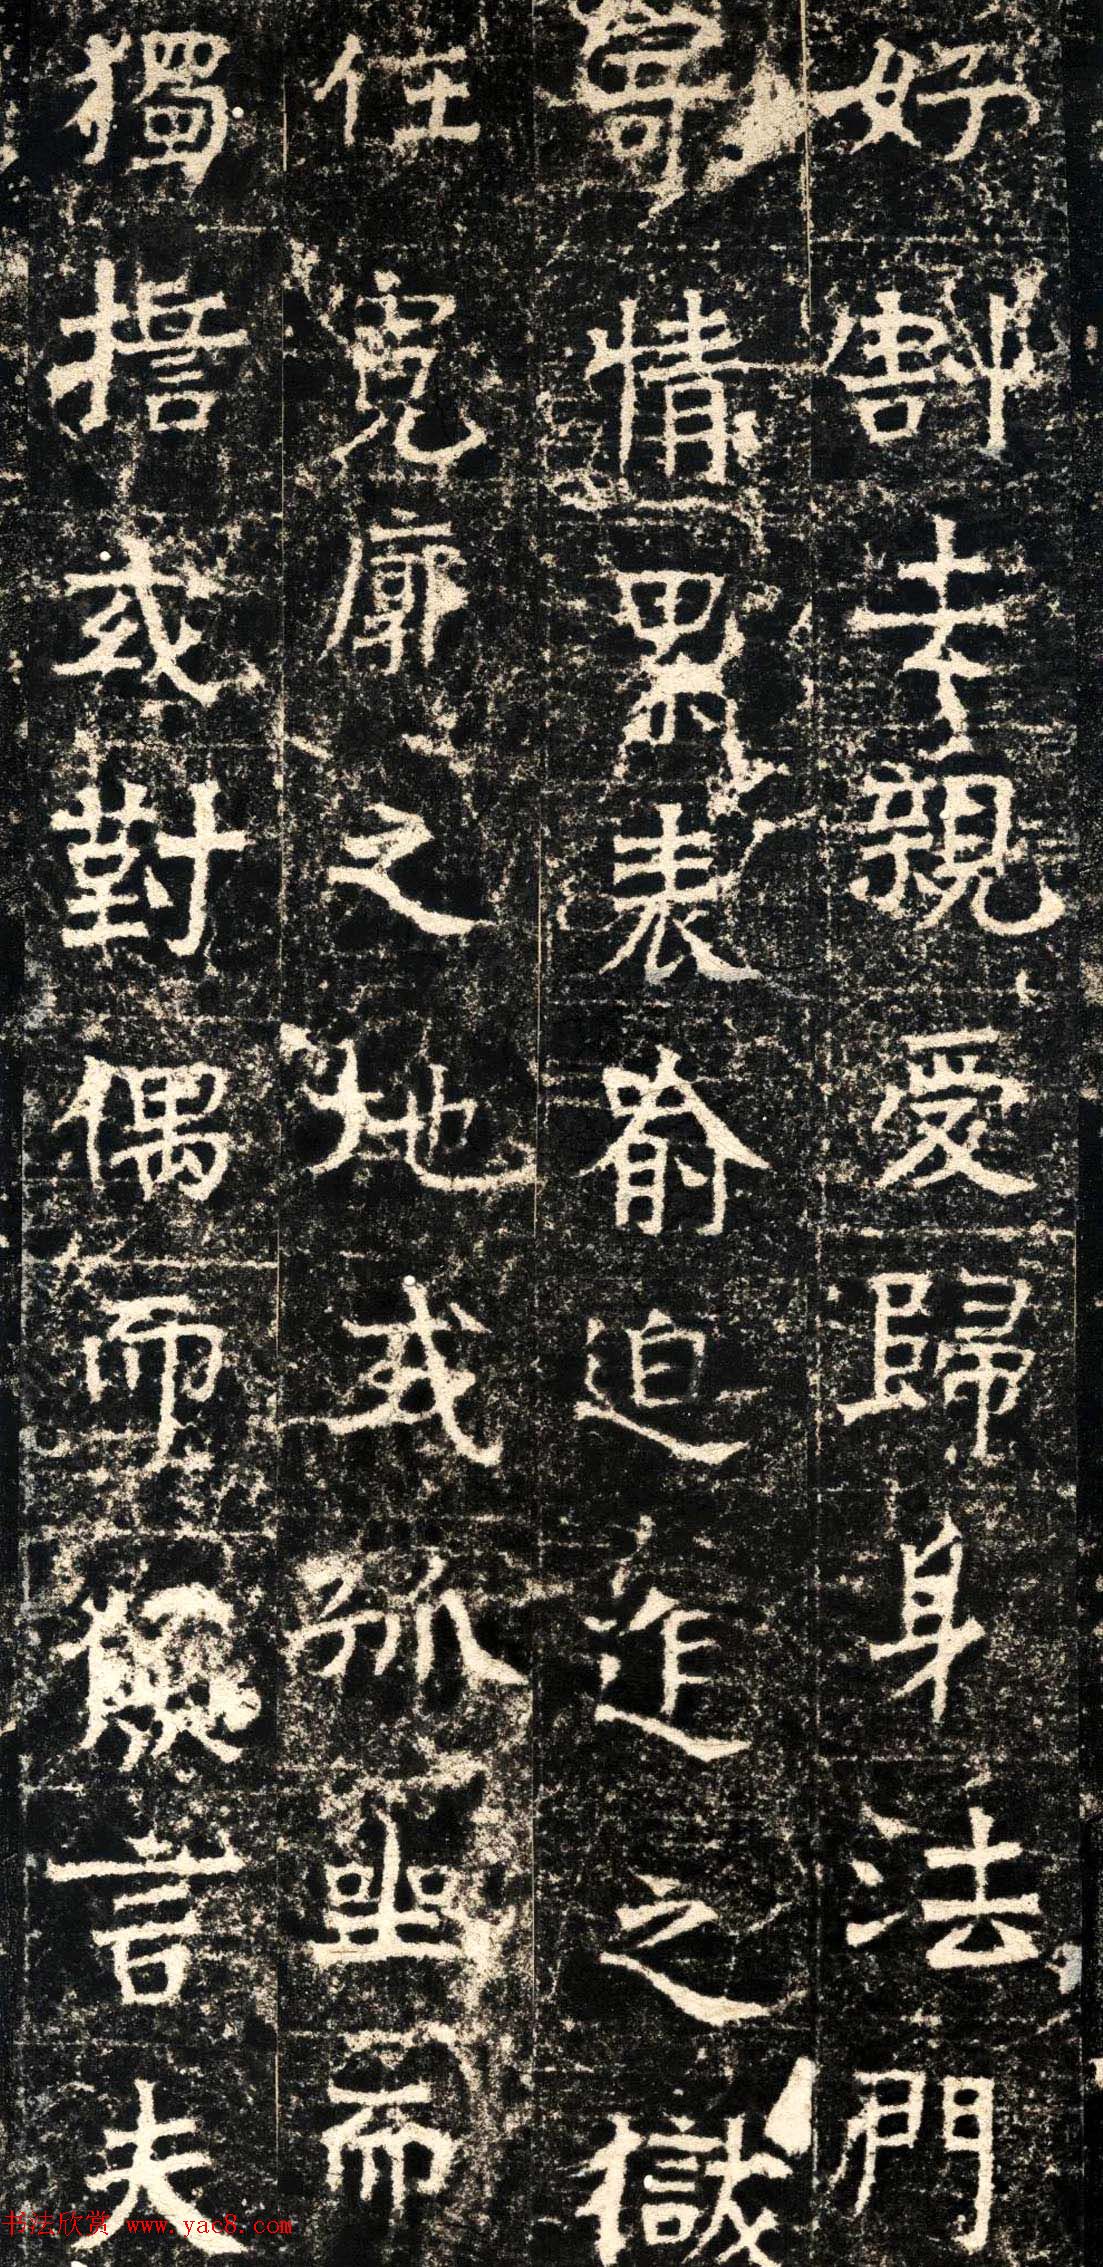 好割去親愛歸身法門
寄情累表迫迮之獄
任寬廓之地或孤坐而
獨擔或對偶而言夫
书法欣赏 www.yac8.com